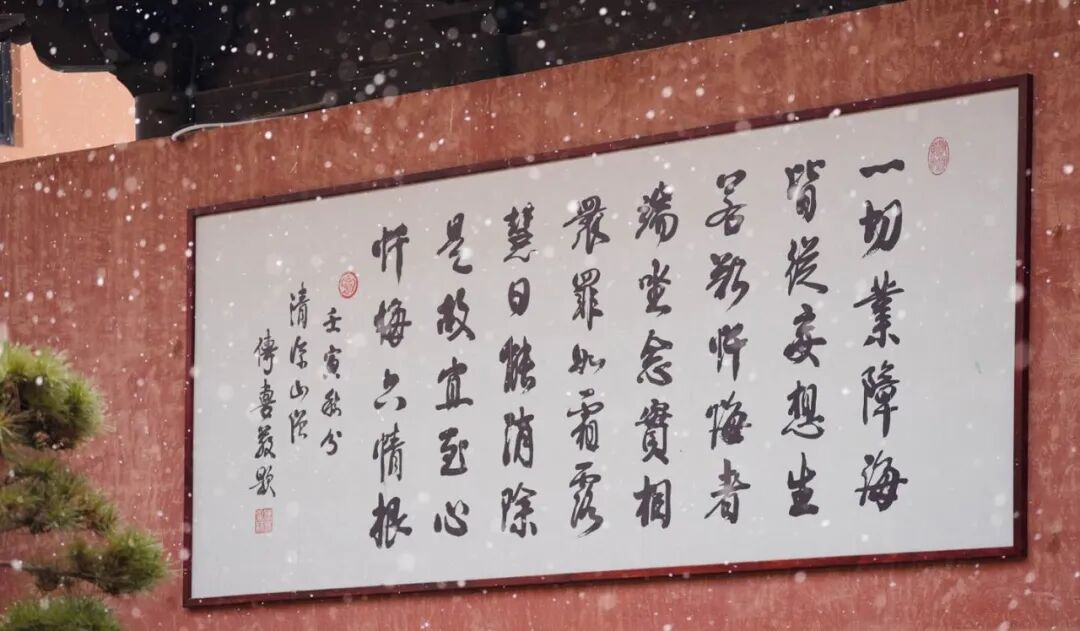 一切業障海
皆從妄想生
若欲忏悔者
端坐念實相
眾罪如霜露
慧日能消除
是故宜至心
忏悔六情根
壬寅秋分
清涼山
傳喜敬題